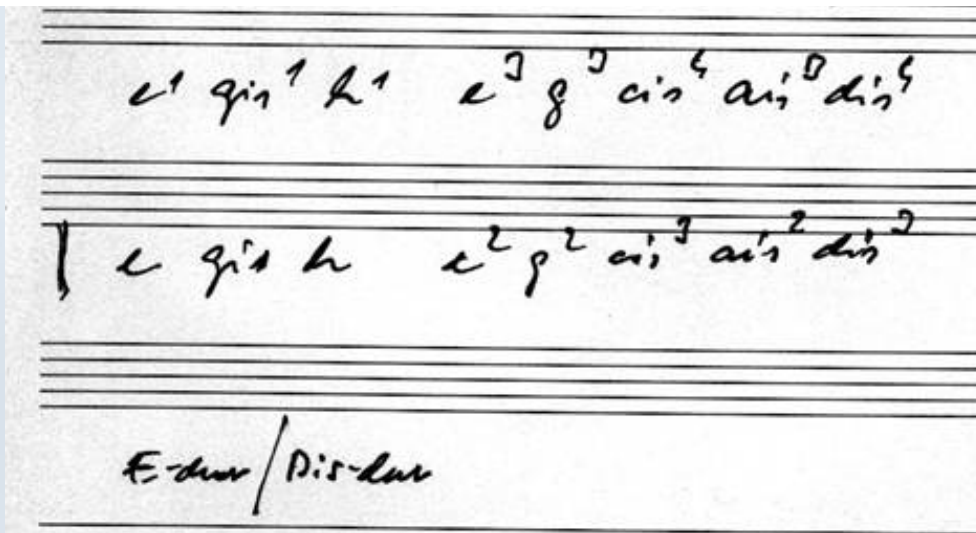 e¹ gis¹ h¹ e³ g³ cis⁴ ais³ dis⁴
e gis h e² g² cis³ ais² dis³
E-dur / Dis-dur